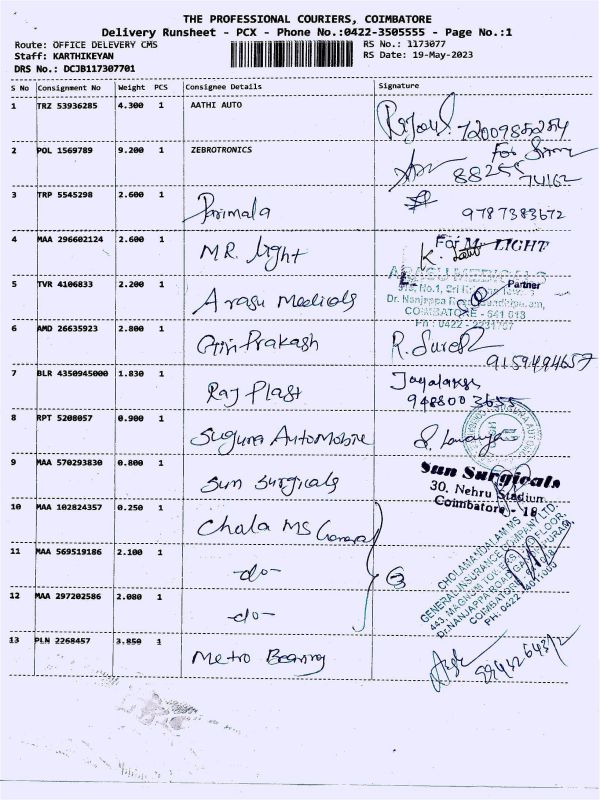 THE PROFESSIONAL COURIERS, COIMBATORE
Delivery Runsheet - PCX - Phone No.:0422-3505555 - Page No.:1
Route: OFFICE DELEVERY CMS
RS No.: 1173077
Staff: KARTHIKEYAN
RS Date: 19-May-2023
DRS No.: DCJB117307701
S No Consignment No Weight PCS Consignee Details Signature
1 TRZ 53936285 4.300 1 AATHI AUTO
7200985254
2 POL 1569789 9.200 1 ZEBROTRONICS
For
88255
74162
3 TRP 5545298 2.600 1 Parimala
9787383672
4 MAA 296602124 2.600 1 MR. Light
For Mr. LIGHT
K.
5 TVR 4106833 2.200 1 Arasu Medicals
ARASU MEDICALS
Partner
Dr. Nanjappa
COIMBATORE - 641 018
Ph : 0422 -
6 AMD 26635923 2.800 1 Giri Prakash R. Suresh
9159494657
7 BLR 4350945000 1.830 1 Raj Plast
9488003655
8 RPT 5208057 0.900 1 Sugura Automobile
9 MAA 570293830 0.800 1 Sun Surgicals
Sun Surgicals
30, Nehru Stadium
Coimbatore - 18
10 MAA 102824357 0.250 1 Chola MS General
11 MAA 569519186 2.100 1 -do-
3
12 MAA 297202586 2.080 1 -do-
CHOLAMANDALAM MS
GENERAL INSURANCE COMPANY LTD.
FLOOR,
COIMBATORE
Ph: 0422
13 PLN 2268457 3.850 1 Metro Bearing